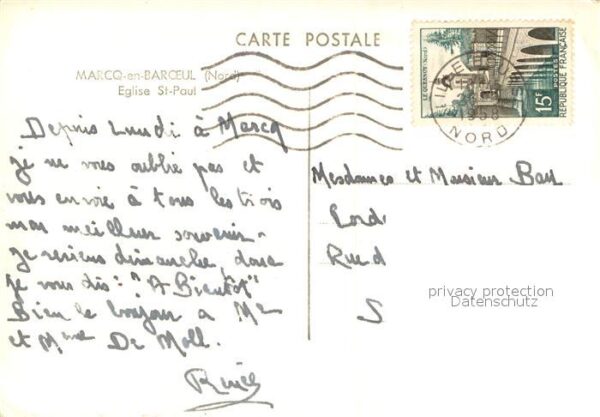 CARTE POSTALE
MARCQ-en-BARŒUL (Nord)
Eglise St-Paul
LE QUESNOY (Nord)
15F
POSTES
REPUBLIQUE FRANÇAISE
LILLE
1958
NORD
Depuis Lundi à Marcq
je ne vous oublie pas et
vous envoie à tous les trois
mon meilleur souvenir.
Je reviens dimanche donc
je vous dis : "A Bientôt"
Bien le bonjour à Mr
et Mme De Moll.
Mesdames et Monsieur
Rue d
S
privacy protection
Datenschutz